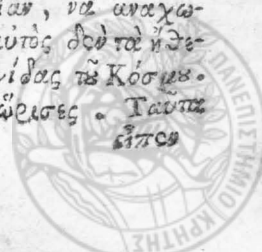 ίαν, να αναχω-
αὐτὸς δὲν τὰ ἤθε-
νίδας τοῦ Κόσμου.
ώρισες. Ταῦτα
εἶπεν
ΠΑΝΕΠΙΣΤΗΜΙΟ ΚΡΗΤΗΣ